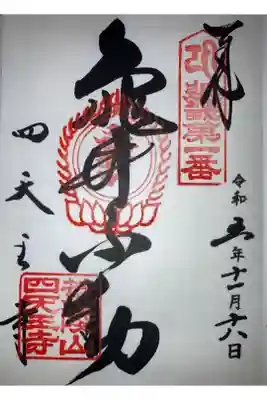 奉拝
第一番
亀井不動
四天王寺
荒陵山
四天王寺
令和五年十一月十八日